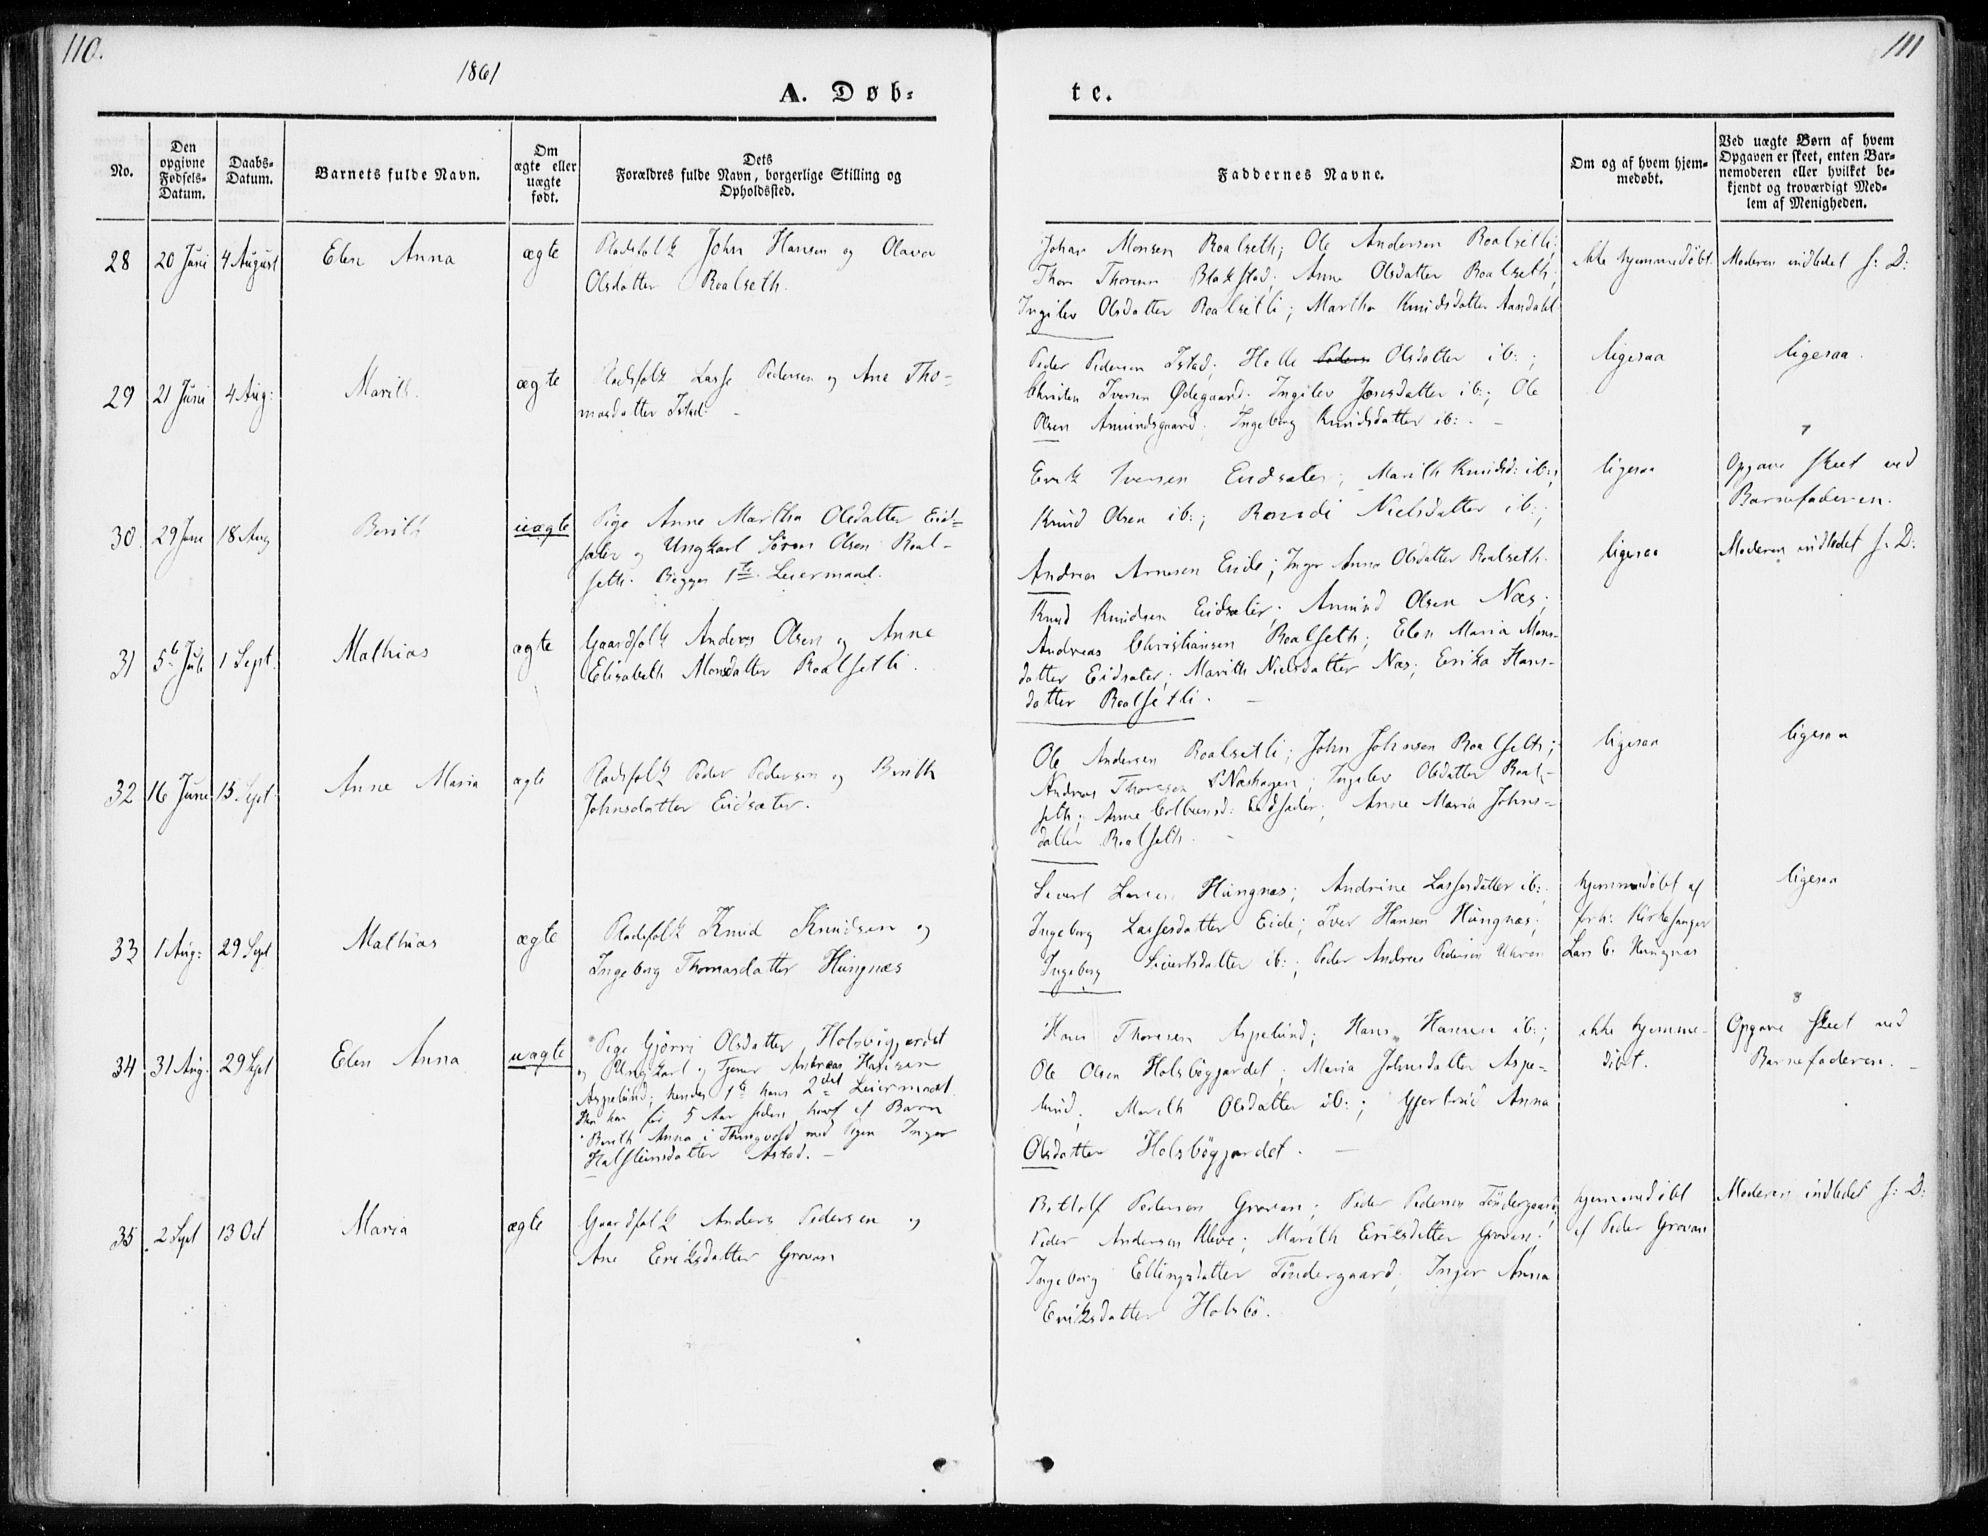 110.
1861
A. Døb-
No.
Den
opgivne
Fødsels-
Datum.
Daabs-
Datum.
Barnets fulde Navn.
Om
ægte eller
uægte
født.
Dets
Forældres fulde Navn, borgerlige Stilling og
Opholdssted.
28 20 Juni 4 August Elen Anna ægte
Pladsfolk John Hansen og Olava
Olsdatter Roalseth.
29 21 Juni 4 Aug: Marith ægte
Pladsfolk Lasse Pedersen og Ane Tho-
masdatter Istad. -
30 29 June 18 Aug Berith uægte
Pige Anne Martha Olsdatter Eid-
sæter og Ungkarl Søren Olsen Roal-
seth. Begges 1ste Leiermaal.
31 5te Juli 1 Sept. Mathias ægte
Gaardfolk Anders Olsen og Anne
Elisabeth Monsdatter Roalsetli.
32 16 June 15 Sept Anne Maria ægte
Pladsfolk Peder Pedersen og Berith
Johnsdatter Eidsæter.
33 1 Aug: 29 Sept Mathias ægte
Pladsfolk Knud Knudsen og
Ingeborg Thomasdatter Hungnæs
34 31 Aug. 29 Sept Elen Anna uægte
Pige Gjørri Olsdatter Holsbøgjerdet
og Ungkarl og Tjener Andreas Hansen
Aspelund; hendes 1ste hans 2det Leiermaal.
Han har for 5 Aar siden havt et Barn
Berith Anna i Thingvold med Pigen Inger
Halsteinsdatter Astad. -
35 2 Sept 13 Oct Maria ægte
Gaardfolk Anders Pedersen og
Ane Eriksdatter Grovan
111
te.
Faddernes Navne.
Om og af hvem hjem-
medøbt.
Ved uægte Børn af hvem
Opgaven er skeet, enten Bar-
nemoderen eller hvilket be-
kjendt og troværdigt Med-
lem af Menigheden.
Johan Monsen Roalseth; Ole Andersen Roalsetli;
Thore Thoresen Blakstad; Anne Olsdatter Roalseth;
Ingilev Olsdatter Roalsetli; Martha Knudsdatter Aandahl
ikke hjemmedøbt. Moderen indledet s: D:
Peder Pedersen Istad; Helle Olsdatter ib:;
Christen Iversen Ødegaard. Ingilev Jonsdatter ib:; Ole
Olsen Amundsgaard; Ingeborg Knudsdatter ib: -
ligesaa ligesaa.
Erik Iversen Eidsæter; Marith Knudsd: ib:;
Knud Olsen ib:; Randi Nielsdatter ib:;
Andreas Arnesen Eide; Inger Anna Olsdatter Roalseth.
ligesaa
7
Opgave skeet ved
Barnefaderen.
Knud Knudsen Eidsæter; Amund Olsen Næs;
Andreas Christiansen Roalseth; Elen Maria Mons-
datter Eidsæter; Marith Nielsdatter Næs; Erika Hans-
datter Roalsetli. -
ligesaa Moderen indledet s. D:
Ole Andersen Roalsetli; John Johnsen Roalseth;
Andreas Thoresen Næshagen; Ingilev Olsdatter Roal-
seth; Anne Colbeinsd: Eidsæter; Anne Maria Johns-
datter Roalseth. -
ligesaa ligesaa
Sivert Larsen Hungnæs; Andrine Lassesdatter ib:;
Ingeborg Lassesdatter Eide; Iver Hansen Hungnæs;
Ingeborg Sivertsdatter ib:; Peder Andreas Pedersen
hjemmedøbt af
forh: Kirkesanger
Lars E. Hungnæs
ligesaa
Hans Thoresen Aspelund; Hans Hansen ib:;
Ole Olsen Holsbøgjerdet; Maria Johnsdatter Aspe-
lund; Marith Olsdatter ib:; Gjertrud Anna
Olsdatter Holsbøgjerdet. -
ikke hjemme-
døbt.
8
Opgave skeet ved
Barnefaderen. -
Botolf Pedersen Grovan; Peder Pedersen Tøndergaard;
Peder Andersen Kleve; Marith Eriksdatter Grovan;
Ingeborg Ellingsdatter Tøndergaard; Inger Anna
Eriksdatter Holsbø.
hjemmedøbt
af Peder Grovan
Moderen indledet s: D: